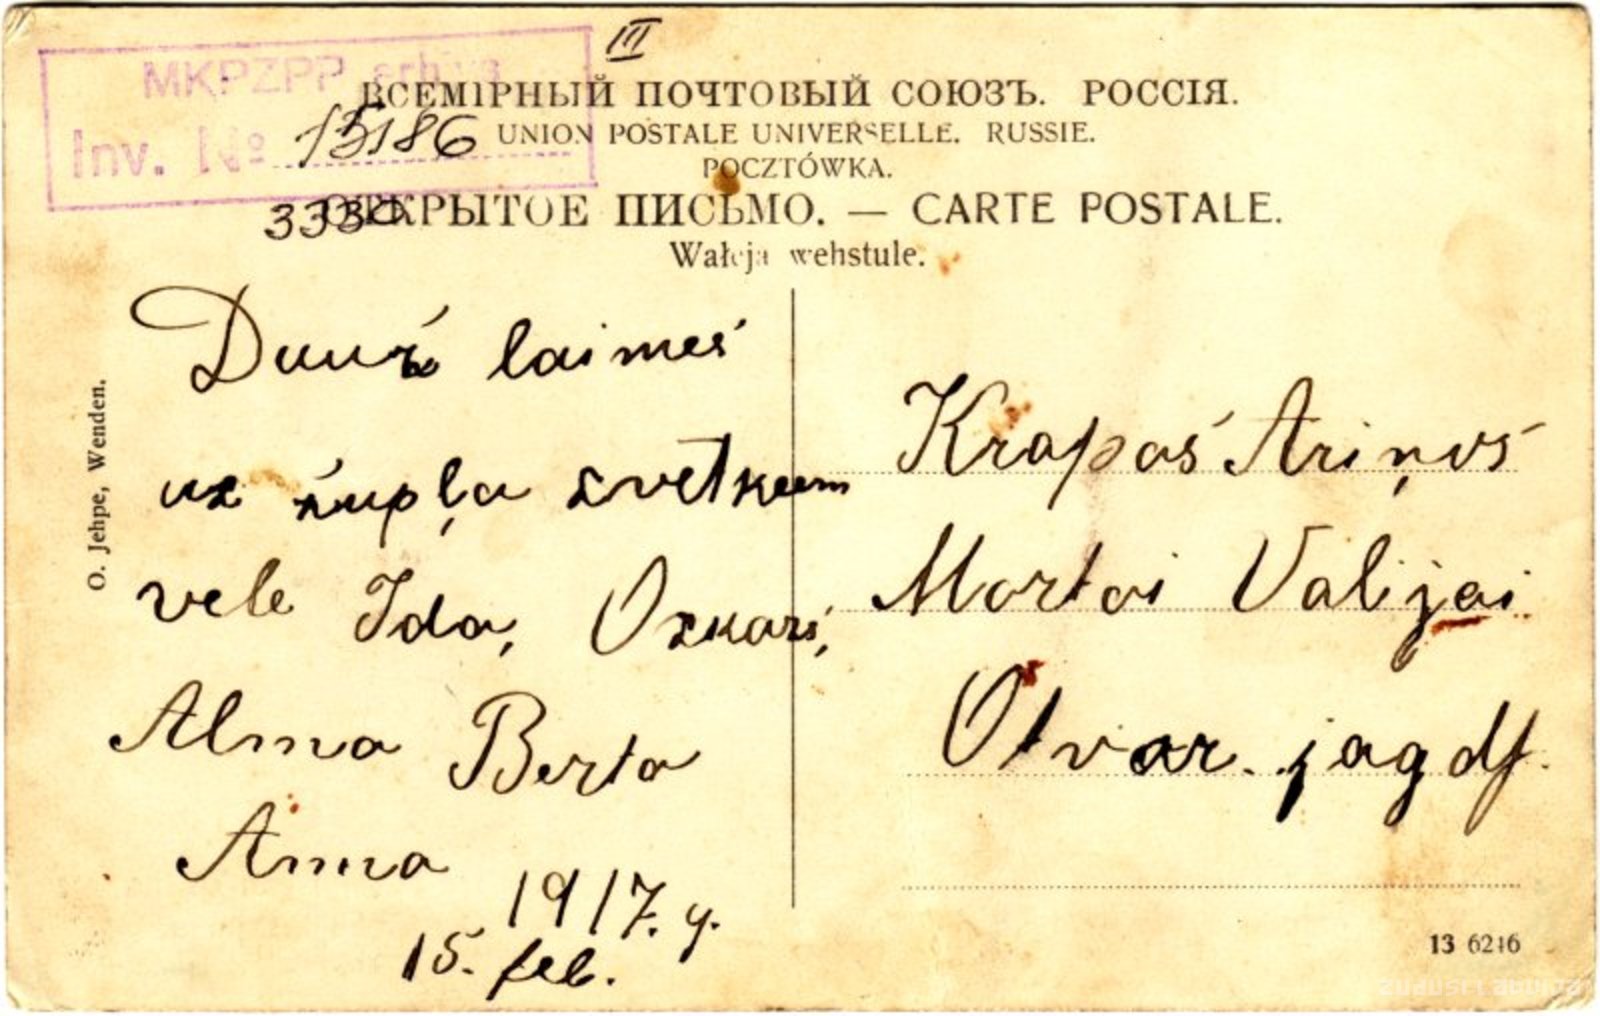 III
MKPZPP arhīvs
Inv. № 15186
ВСЕМІРНЫЙ ПОЧТОВЫЙ СОЮЗЪ. РОССІЯ.
UNION POSTALE UNIVERSELLE. RUSSIE.
POCZTÓWKA.
3330
ОТКРЫТОЕ ПИСЬМО. — CARTE POSTALE.
Wałeja wehstule.
O. Jehpe, Wenden.
laimes
uz svētkeem
vele Ida, Oskars,
Alma Berta
Anna
1917. g.
15. feb.
Martai Valijai
13 6246